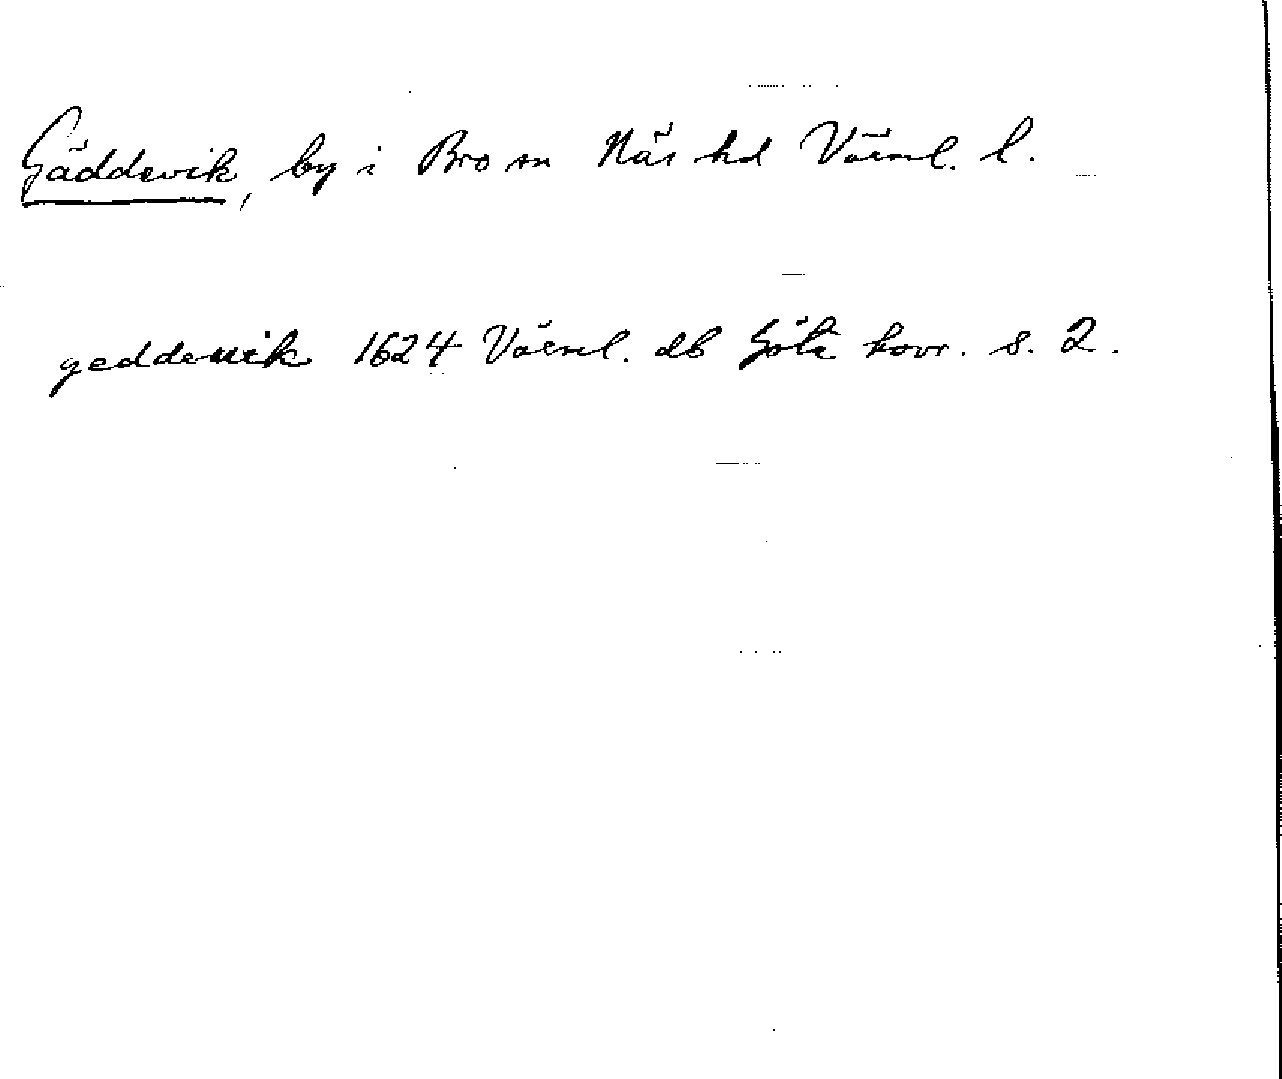 Gäddevik, by i Bro sn Näs hd Värml. l.
geddeuik 1624 Värml. db Göta hovr. s. 2.